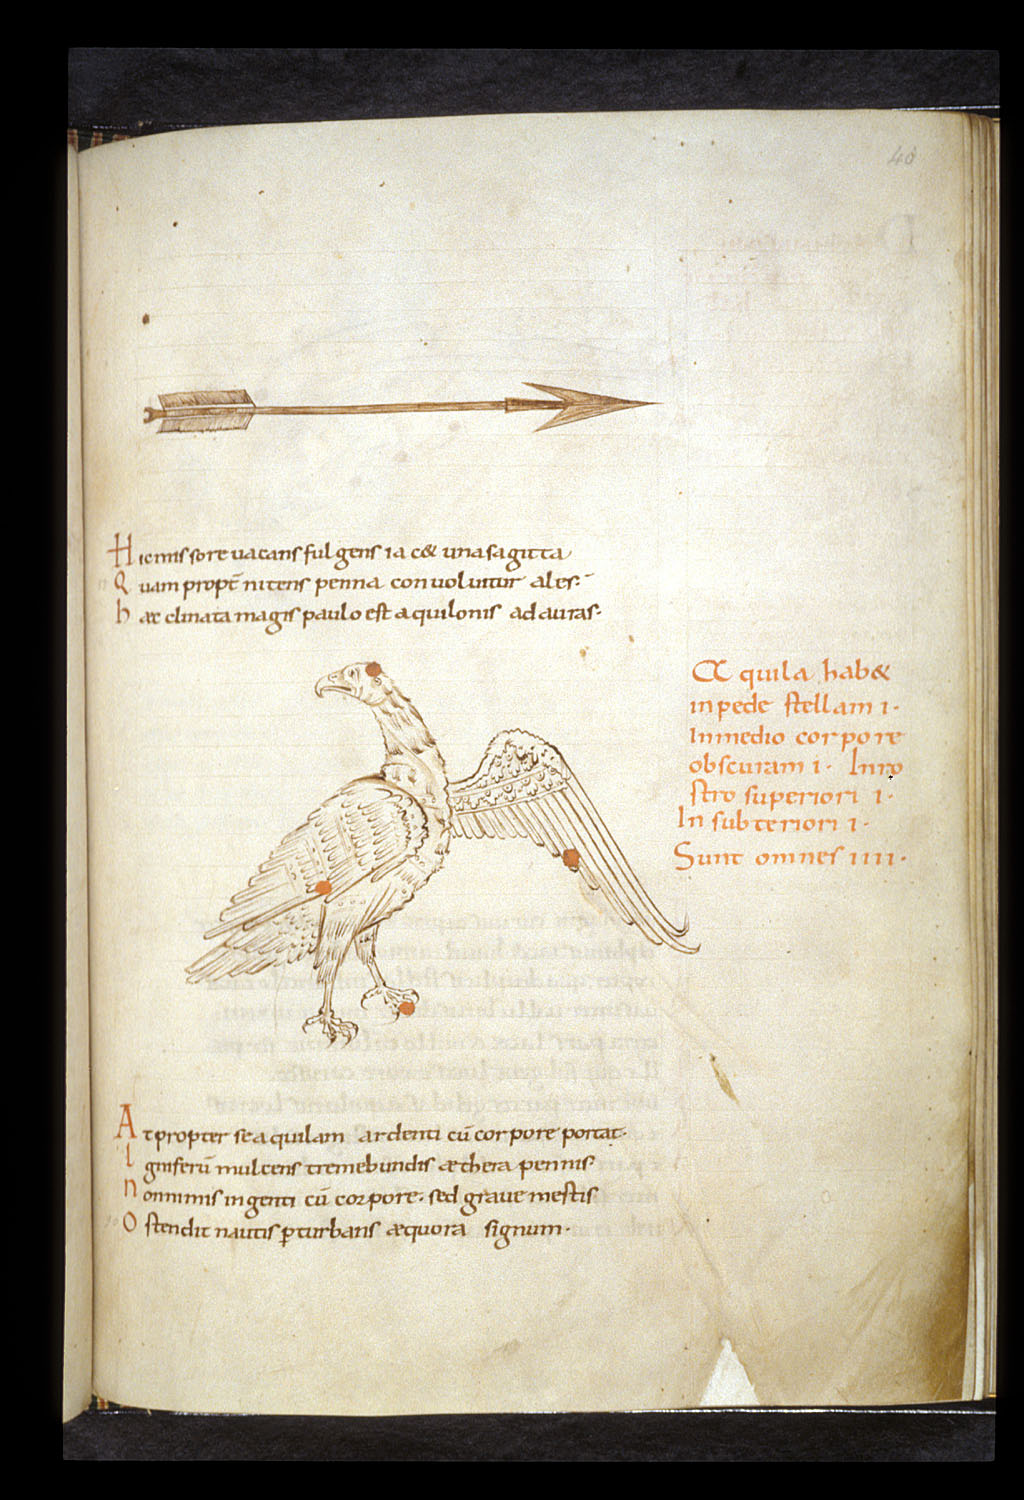 40
Hic missore uacans fulgens iac& una sagitta
Quam propt̄ nitens penna conuoluitur ales.
haec clinata magis paulo est aquilonis ad auras.
Aquila hab&
in pede stellam i.
In medio corpore
obscuram i. In ro
stro superiori i.
In subteriori i.
Sunt omnes iiii.
At propter se aquilam ardenti cū corpore portat.
Igniferū mulcens tremebundis aethera pennis.
non nimis ingenti cū corpore. sed graue mestis
Ostendit nautis ꝑturbans aequora signum.